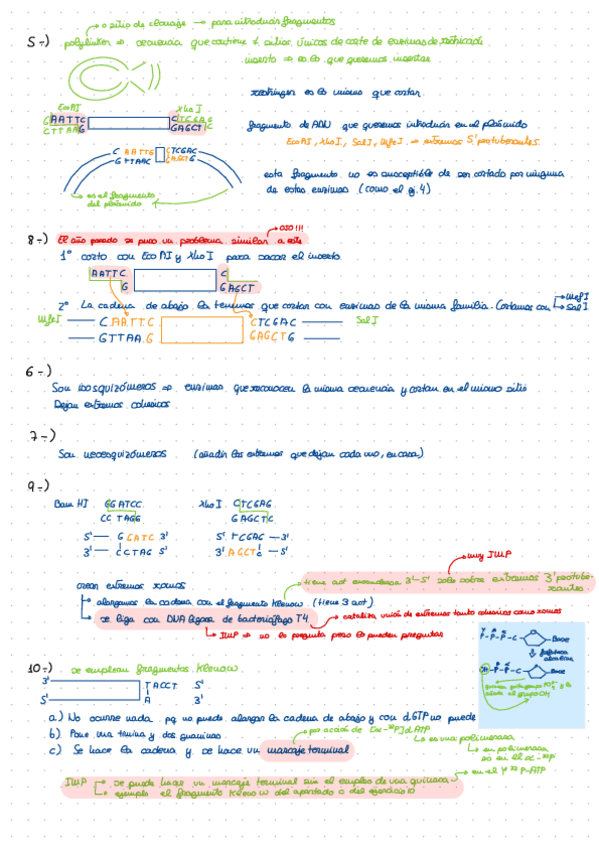 → o sitio de clonaje → para introducir fragmentos
5-) polylinker ⇒ secuencia que contiene + sitios únicos de corte de enzimas de restricción
inserto ⇒ es lo que queremos insertar
restringen es lo mismo que cortar.
EcoRI XhoI
AATTC CTCGAG
CTTAAG GAGCT
fragmento de ADN que queremos introducir en el plásmido
EcoRI, XhoI, SalI, MfeI ⇒ extremos 5' protuberantes
C AATTG CTCGAC
GTTAAC AGCTG
esta fragmento no es susceptible de ser cortado por ninguna
de estas enzimas (como el ej. 4)
es el fragmento
del plásmido
OJO!!!
8-) El año pasado se puso un problema similar a este
1º corto con EcoRI y XhoI para sacar el inserto
AATTC C
G GAGCT
2º La cadena de abajo la tenemos que cortar con enzimas de la misma familia. Cortamos con MfeI
SalI
MfeI C AATTC CTCGAC SalI
GTTAA G GAGCTG
6-)
Son isosquizómeros ⇒ enzimas que reconocen la misma secuencia y cortan en el mismo sitio
Dejan extremos cohesivos
7-)
Son neosquizómeros (añadir los extremos que dejan cada uno, en casa)
9-)
Bam HI GGATCC XhoI CTCGAG
CCTAGG GAGCTC
5' — G GATC 3' 5' TCGAG — 3'
3' — CCTAG 5' 3' AGCT C — 5'
muy IMP
crean extremos romos
tiene act exonucleasa 3'-5' solo sobre extremos 3' protube-
rantes
alargamos la cadena con el fragmento Klenow (tiene 3 act)
se liga con DNA ligasa de bacteriófago T4 → cataliza unión de extremos tanto cohesivos como romos
IMP → no lo pregunta pero lo pueden preguntar
10-) se emplean fragmentos Klenow
3' TACCT 5'
5' A 3'
P-P-P-C Base
fosfatasa
alcalina
OH Base
a) No ocurre nada pq no puede alargar la cadena de abajo y con dGTP no puede
b) Pone una timina y dos guaninas
por acción de [α-³²P]dATP
c) Se hace la cadena y se hace un marcaje terminal
la es una polimerasa
en polimerasa
es en el α-³²P
IMP → se puede hacer un marcaje terminal sin el empleo de una quinasa → en el γ ³²P-ATP
ejemplo el fragmento Klenow del apartado c del ejercicio 10